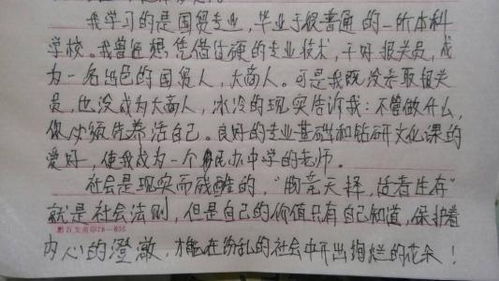 我学习的是国贸专业,毕业于很普通的一所本科
学校。我曾遐想凭借过硬的专业技术,干好报关员,成
为一名出色的国贸人,大商人。可是我既没考取报关
员,也没成为大商人,冰冷的现实告诉我:不管做什么,
你必须先养活自己。良好的专业基础和钻研文化课的
爱好,使我成为一个民办中学的老师。
社会是现实而残酷的,“物竞天择,适者生存”
就是社会法则,但是自己的价值只有自己知道,保护着
内心的澄澈,才能在纷乱的社会中开出绚烂的花朵!